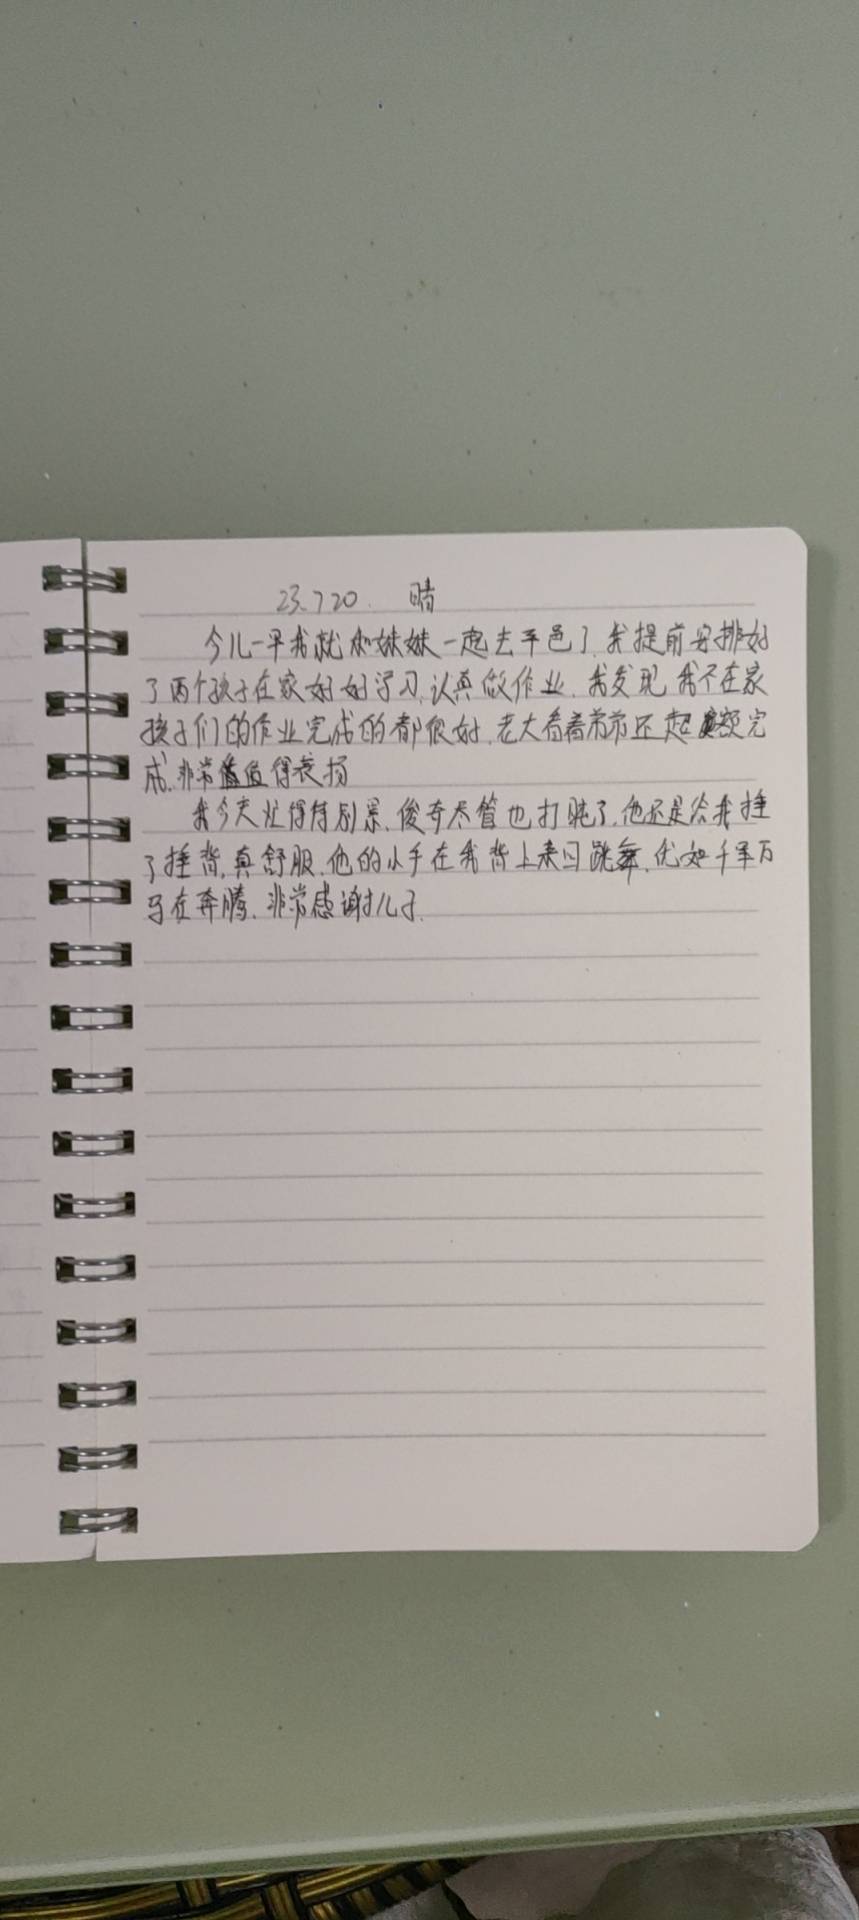 23.7.20. 晴
今儿一早我就和妹妹一起去平邑了.我提前安排好
了两个孩子在家好好学习,认真做作业.我发现我不在家
孩子们的作业完成的都很好.老大看着弟弟还超额完
成.非常值得表扬
我今天忙得特别累.俊奇尽管也打盹了.他还是给我捶
了捶背.真舒服.他的小手在我背上来回跳舞.优如千军万
马在奔腾.非常感谢儿子.